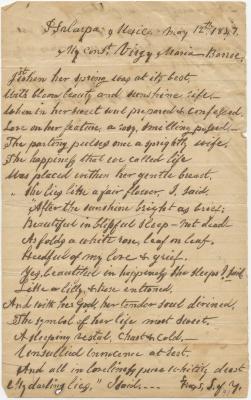 Jalapa, Mexico May 12th, 1847.
My Virgy Maria
'Twas when her spring was at its best,
With bloom, beauty and sunshine rife,
When in her sweet and
Love on her feature, a rosy, smiling
The parting pulses once a sprightly wife.
The happiness that we called life
Was placed within her gentle breast.
"She lies like a fair flower, I said,
After the sunshine bright as brief;
Beautiful in blissful sleep—not dead
As folds a white rose, leaf on leaf,
Heedful of my love & grief.
Yes, beautiful in happiness she sleeps I said
Like a lily & rose entoned.
And with her God, her tender soul divined,
The symbol of her life most sweet,
A sleeping vestal, chaste & cold,—
Unsullied innocence at rest.
And all in loveliness pure & white, dead
My darling lies," I said.--- S. J. Y.